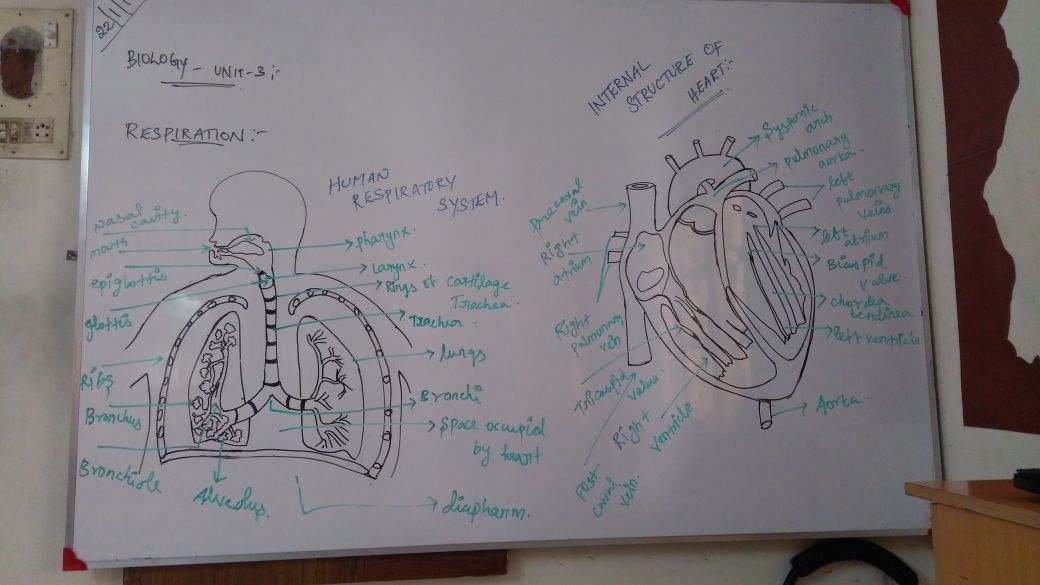 22/1/1
BIOLOGY - UNIT-3:-
RESPIRATION:-
HUMAN
RESPIRATORY
SYSTEM.
Nasal
cavity.
mouth
epiglottis
glottis
Ribs
Bronchus
Bronchiole
Alveolus.
pharynx.
Larynx.
Rings of cartilage
Trachea.
Trachea.
lungs
Bronchi
Space occupied
by heart
diapharm.
INTERNAL
STRUCTURE OF
HEART:-
Precaval
vein
Right
atrium
Right
pulmonary
vein
Tricuspid
valve.
Right
ventricle.
Post
caval
vein.
Systemic
arch
pulmonary
aorta.
left
pulmonary
veins
left
atrium
Bicuspid
valve.
chordea
tendinea
left ventricle
Aorta.